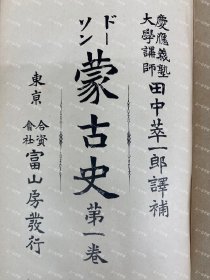 慶應義塾
大學講師
田中萃一郎譯補
ドーソン
蒙古史 第一卷
東京
合資
會社
冨山房發行